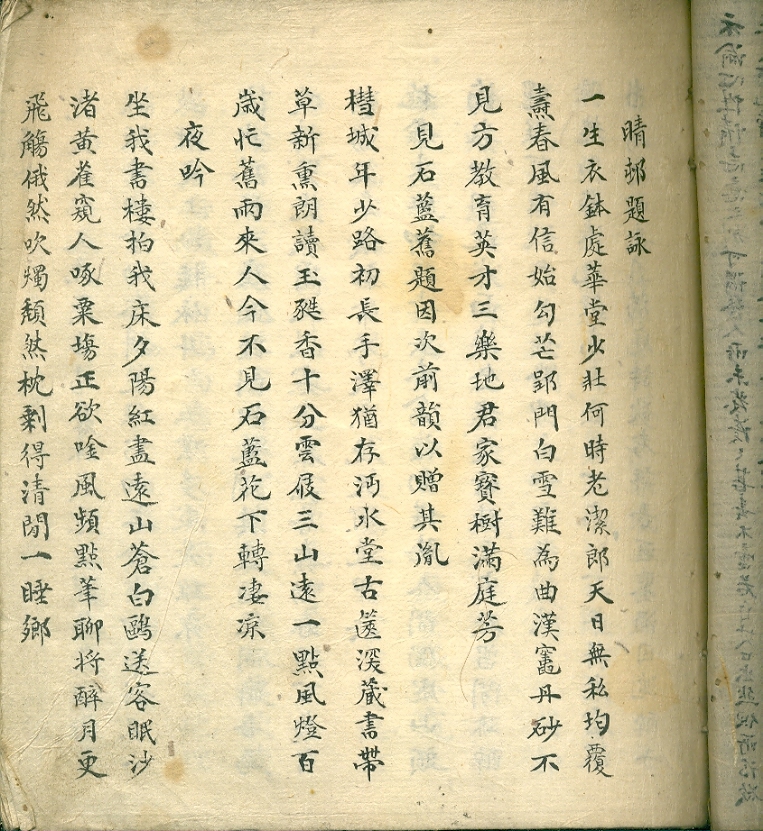 晴邨題詠
一生衣鉢處華堂少壯何時老潔郎天日無私均覆
燾春風有信始勾芒郢門白雪難為曲漢竈丹砂不
見方教育英才三樂地君家寶樹滿庭芳
見石藍舊題因次前韻以贈其胤
樹城年少路初長手澤猶存沔水堂古篋深藏書帶
草新熏朗讀玉蕤香十分雲屐三山遠一點風燈百
歲忙舊雨來人今不見石藍花下轉凄凉
夜吟
坐我書樓拍我床夕陽紅盡遠山蒼白鷗送客眠沙
渚黃雀窺人啄粟塲正欲唫風頻點筆聊將醉月更
飛觴俄然吹燭頹然枕剩得清閒一睡鄉